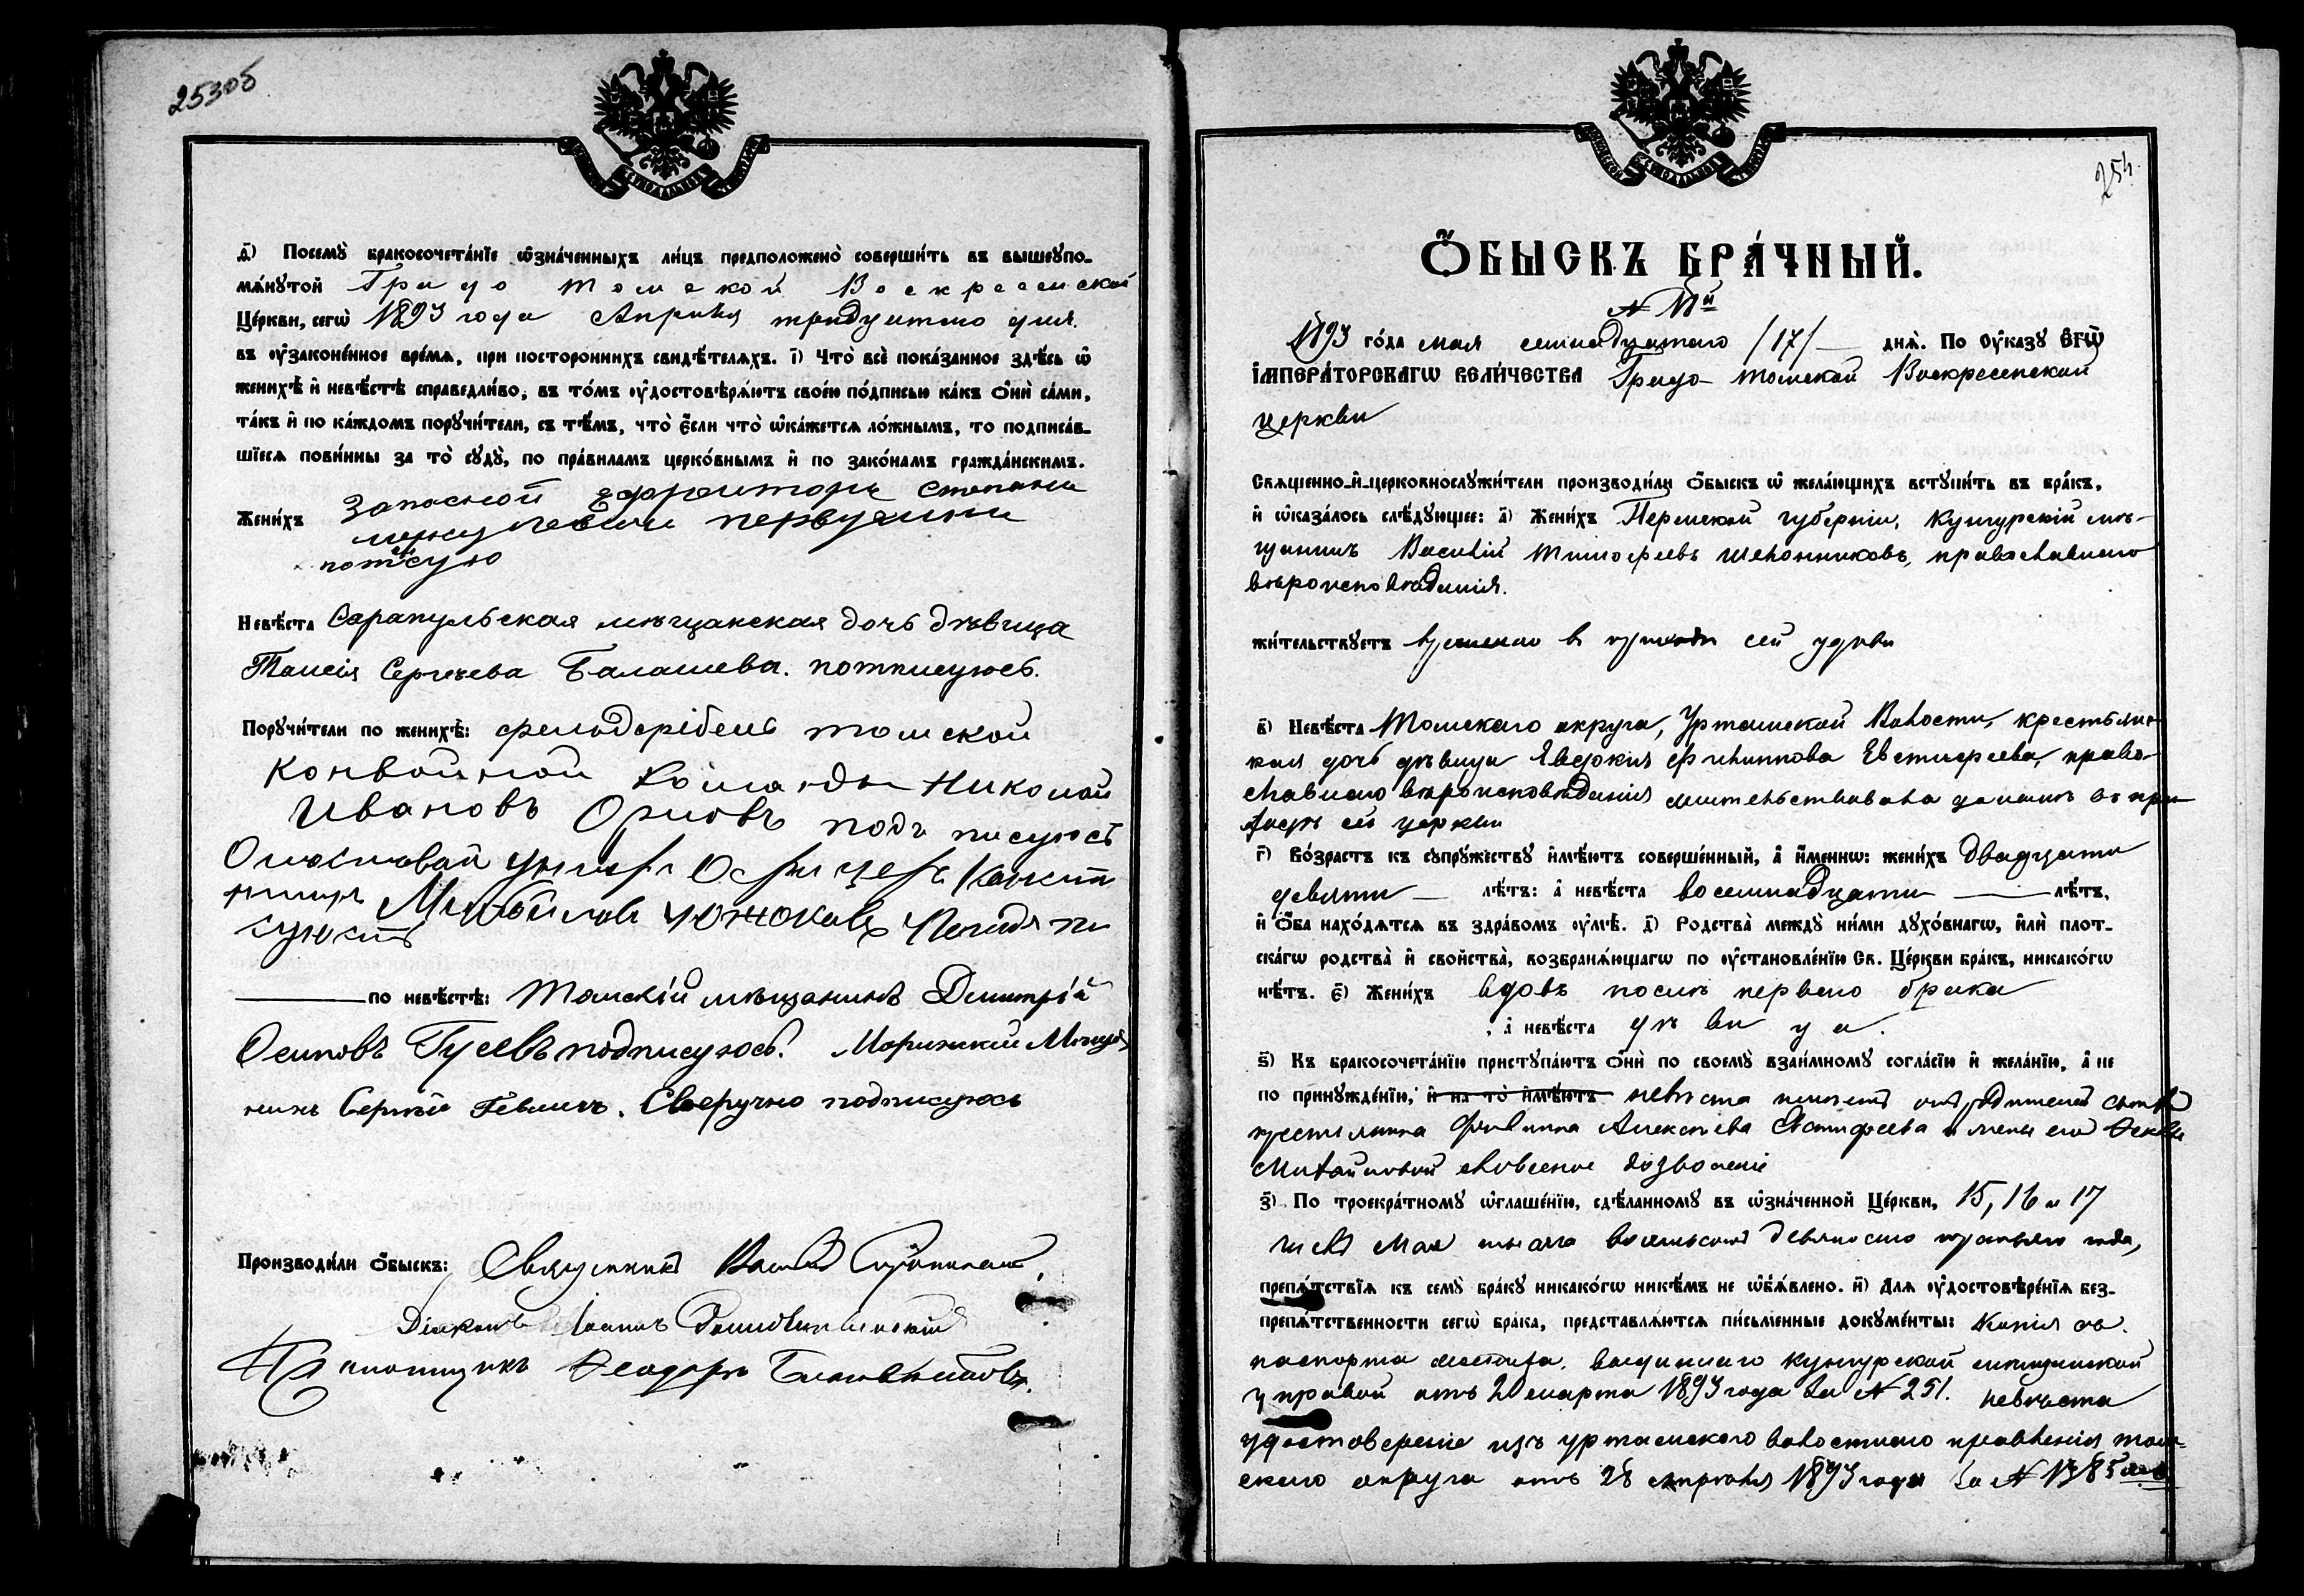 253об
д҃) Посемꙋ̀ бракосочета́нїе ѡ҆зна́ченныхъ ли́цъ предположено̀ соверши́ть въ вышеꙋпо-
мѧ́нꙋтой Градо Томской Воскресенской
Це́ркви, сегѡ̀ 1893 года Апрѣля тридцатаго дня.
въ ᲂу҆законе́нное вре́мѧ, при посторо́ннихъ свидѣ́телѧхъ. і҃) Что̀ всѐ пока́занное здѣ́сь ѡ҆
женихѣ̀ и҆ невѣ́стѣ справедли́во, въ то́мъ ᲂу҆достовѣрѧ́ютъ свое́ю по́дписью ка́къ ѻ҆нѝ са́ми,
та́къ и҆ по ка́ждомъ порꙋчи́тели, съ тѣ́мъ, что̀ є҆́сли что̀ ѡ҆ка́жетсѧ ло́жнымъ, то подписа́в-
шїесѧ пови́нны за то̀ сꙋдꙋ̀, по пра́виламъ церко́внымъ и҆ по зако́намъ гражда́нскимъ.
Жени́хъ Запасной Ефрейторъ Степанъ
Первушинъ
Невѣ́ста Сарапульская мѣщанская дочь дѣвица
Таисія Сергѣева Балашева. потписуюсь.
Порꙋчи́тели по женихѣ̀: фельдфебель томской
конвойной команды Николай
Ивановъ Орловъ подписуюсь
Михайловъ
по невѣ́стѣ: Томскій мѣщанинъ Димитрій
Осиповъ Гусевъ подписуюсь. Марiинскiй Мѣща
нинъ Сергѣй Левинъ. Своеручно подписуюсь
Производи́ли ѻ҆́быскъ: Священникъ
Діаконъ Іоаннъ
Псаломщикъ Ѳеодоръ
254.
Ѻ҆́БЫСКЪ БРА́ЧНЫЙ.
№ 11й
1893 го́да мая семнадцатаго /17/ днѧ̀. По Оу҆ка́зꙋ Є҆гѡ̀
І҆мпера́торскагѡ Вели́чества Градо-Томской Воскресенской
церкви
Свѧще́нно-и҆-церковнослꙋжи́тели производи́ли ѻ҆́быскъ ѡ҆ жела́ющихъ встꙋпи́ть въ бра́къ,
и҆ ѡ҆каза́лось слѣ́дꙋющее: а҃) Жени́хъ Пермской губерніи, Кунгурскій мѣ-
щанинъ Василій Тимофеевъ Шелонниковъ, православнаго
вѣроисповѣданія.
жи́тельствꙋетъ временно въ приходѣ сей церкви
в҃) Невѣ́ста Томскаго округа, Уртамской Волости, крестьянс-
кая дочь дѣвица Евдокия Филиппова Евстифеева, право-
славнаго вѣроисповѣданія жительствовала до нынѣ въ при-
ходѣ сей церкви
г҃) Во́зрастъ къ сꙋпрꙋ́жествꙋ и҆мѣ́ютъ соверше́нный, а҆ и҆́меннѡ: жени́хъ двадцати
девяти — лѣ́тъ: а҆ невѣ́ста восемнадцати — лѣ́тъ,
и҆ ѻ҆́ба нахо́дѧтсѧ въ здра́вомъ ᲂу҆мѣ̀. д҃) Родства̀ междꙋ̀ ни́ми дꙋхо́внагѡ, и҆лѝ плот-
ска́гѡ родства̀ и҆ сво́йства̀, возбранѧ́ющагѡ по ᲂу҆становле́нїю Св. Це́ркви бра́къ, никако́гѡ
нѣ́тъ. є҃) Жени́хъ вдовъ послѣ перваго брака
, а҆ невѣ́ста дѣвица.
ѕ҃) Къ бракосочета́нїю пристꙋпа́ютъ ѻ҆нѝ по своемꙋ̀ взаи́мномꙋ согла́сїю и҆ жела́нїю, а҆ не
по принꙋжде́нїю, и҆ на то̀ и҆мѣ́ютъ невѣста имѣетъ отъ родителей своихъ
крестьянина Филиппа Алексѣева Евстифеева и жены его Ѳеклы
Михайловой словесное дозволеніе
з҃) По троекра́тномꙋ ѡ҆глаше́нїю, сдѣ́ланномꙋ въ ѡ҆зна́ченной Це́ркви, 15, 16 и 17
чиселъ Мая тысяча восемьсотъ девяносто третьяго года,
препѧ́тствїѧ къ семꙋ̀ бра́кꙋ никако́гѡ никѣ́мъ не ѡ҆б̾ѧ́влено. и҃) Длѧ ᲂу҆достовѣре́нїѧ без-
препѧ́тственности сегѡ̀ бра́ка, представлѧ́ютсѧ пи́сьменные докꙋме́нты: Копія съ
паспорта жениха, выданнаго Кунгурской мѣщанской
управой отъ 20 марта 1893 года за № 251. невѣста
удостовереніе изъ уртамскаго волостнаго правленія том-
скаго округа отъ 28 апрѣля 1893 года за № 1385